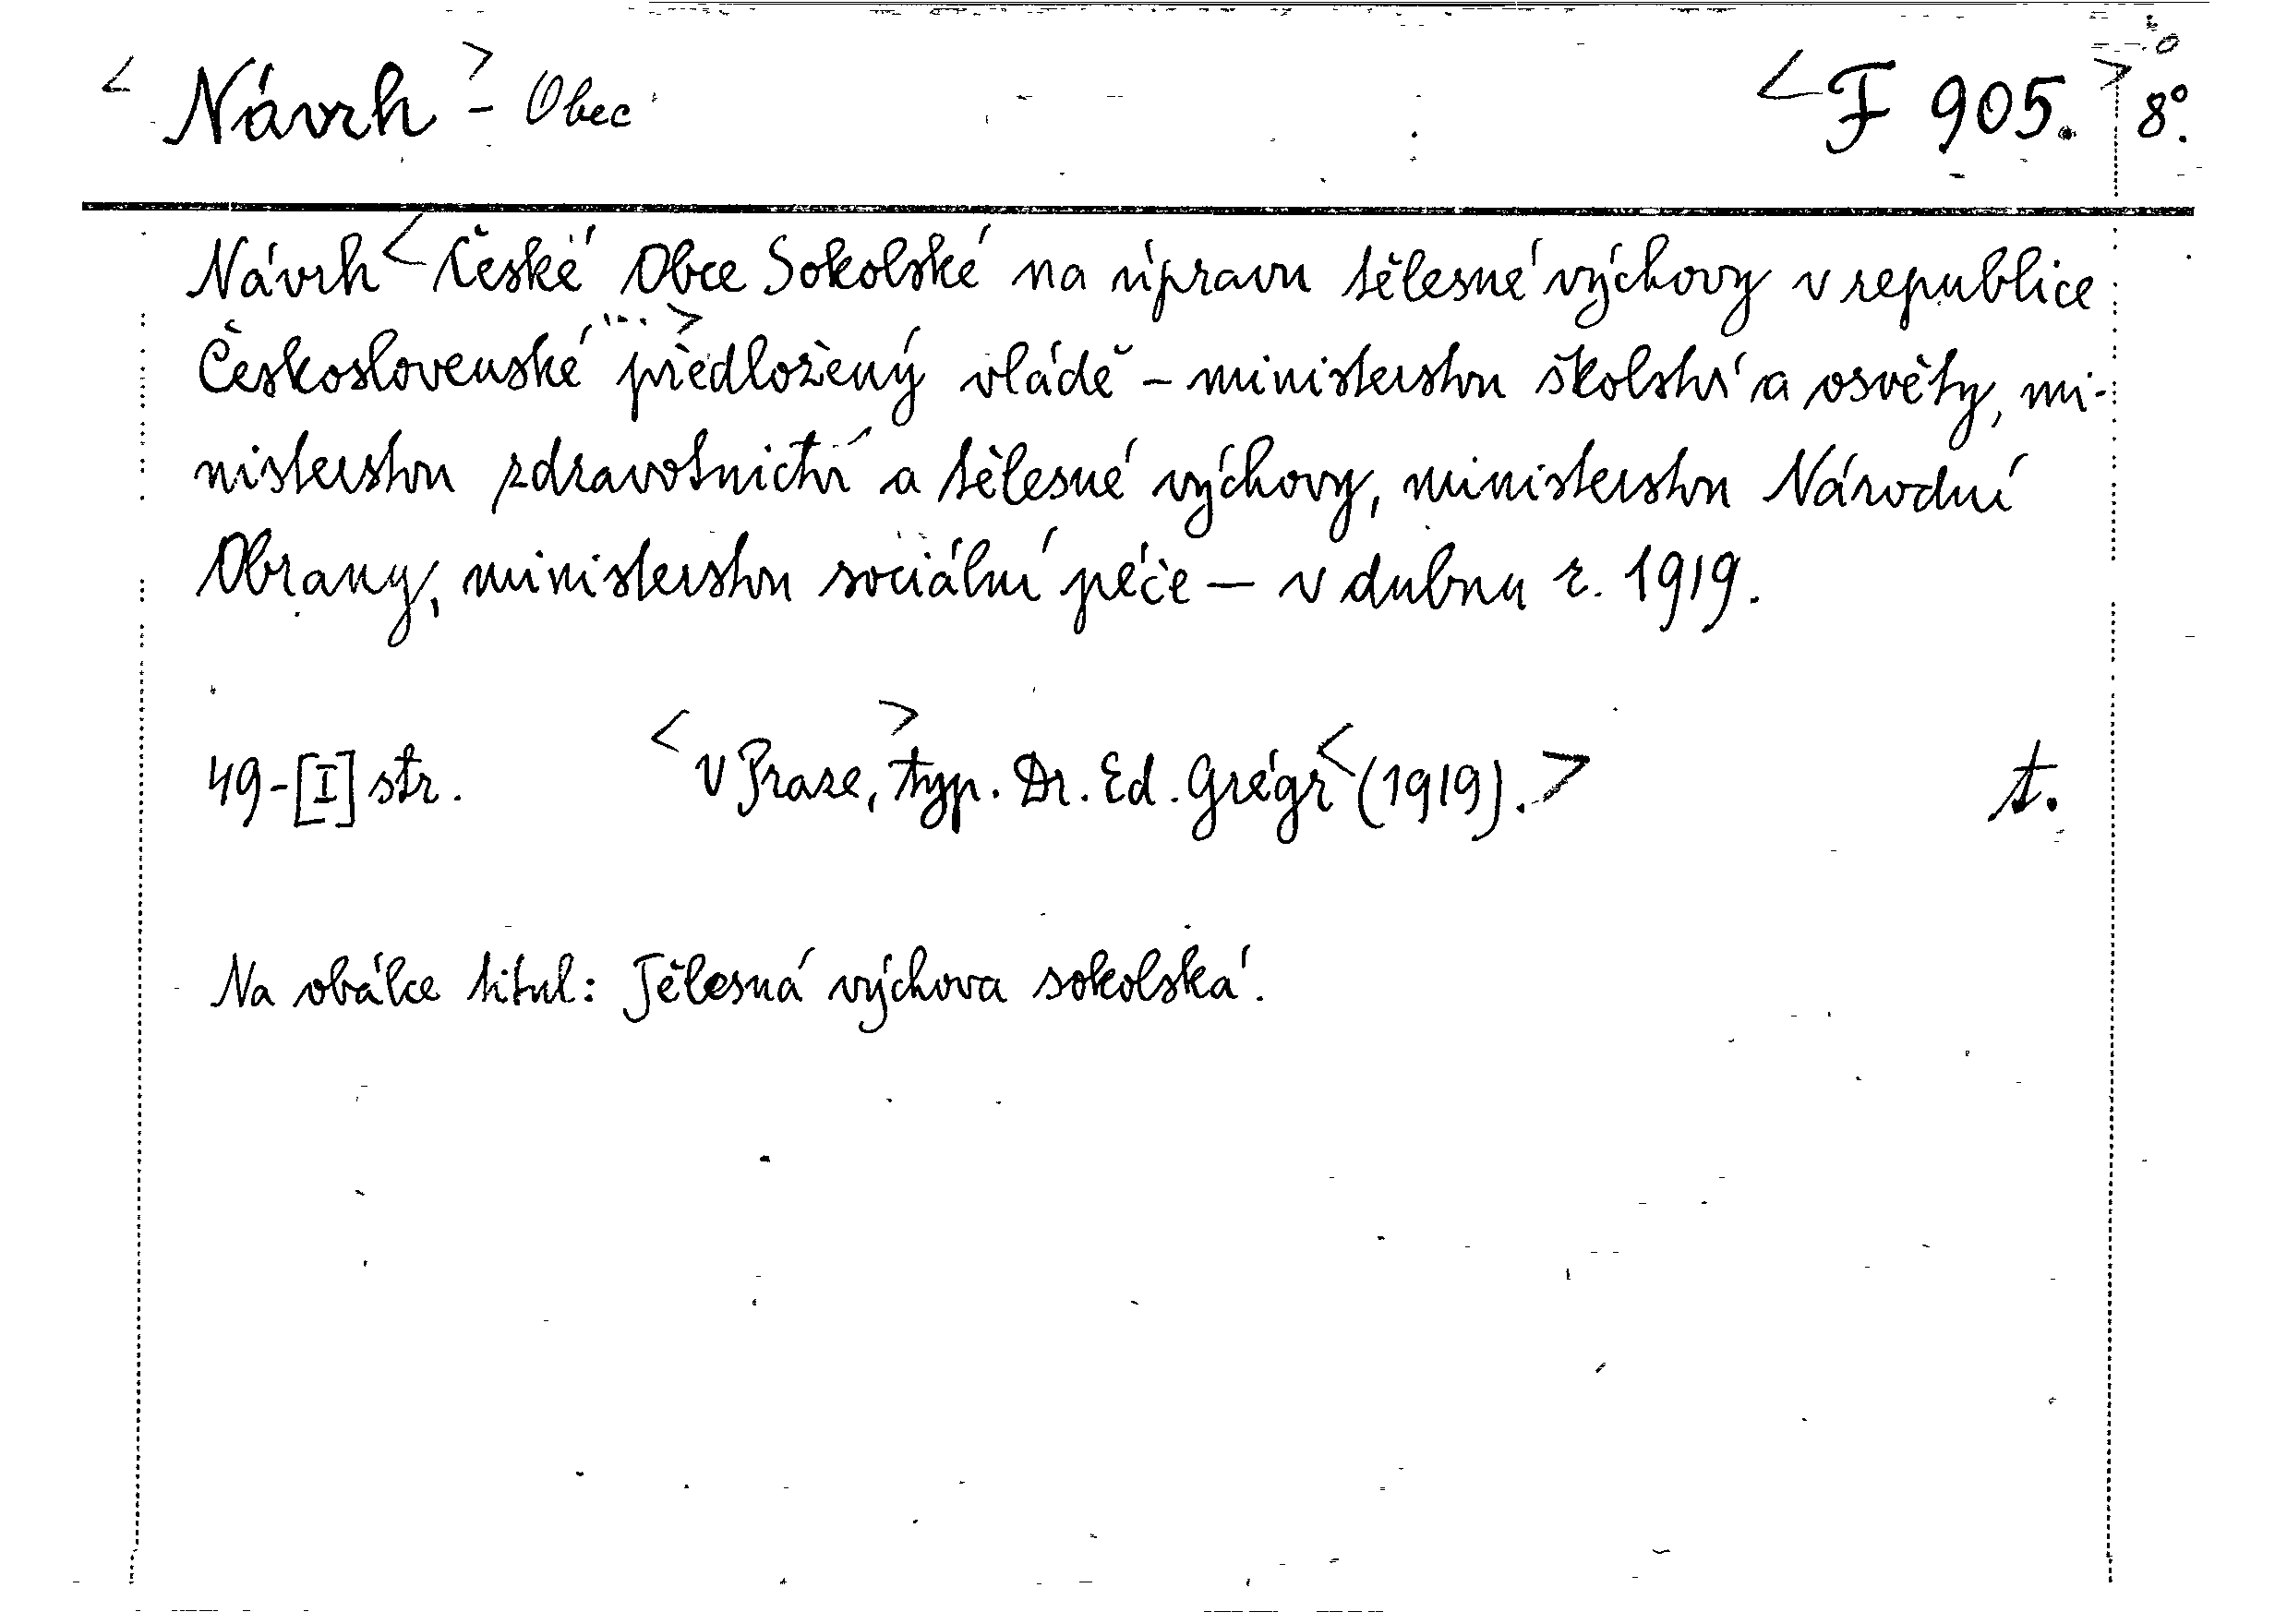 < Návrh > - Obec < F 905. > 8°.
Návrh < České Obce Sokolské na úpravu tělesné výchovy v republice
Československé ... > předložený vládě - ministerstvu školství a osvěty, mi-
nisterstvu zdravotnictví a tělesné výchovy, ministerstvu Národní
Obrany, ministerstvu sociální péče - v dubnu r. 1919.
49-[I] str. < V Praze, > typ. Dr. Ed. Grégr < (1919). > t.
Na obálce titul: Tělesná výchova sokolská.